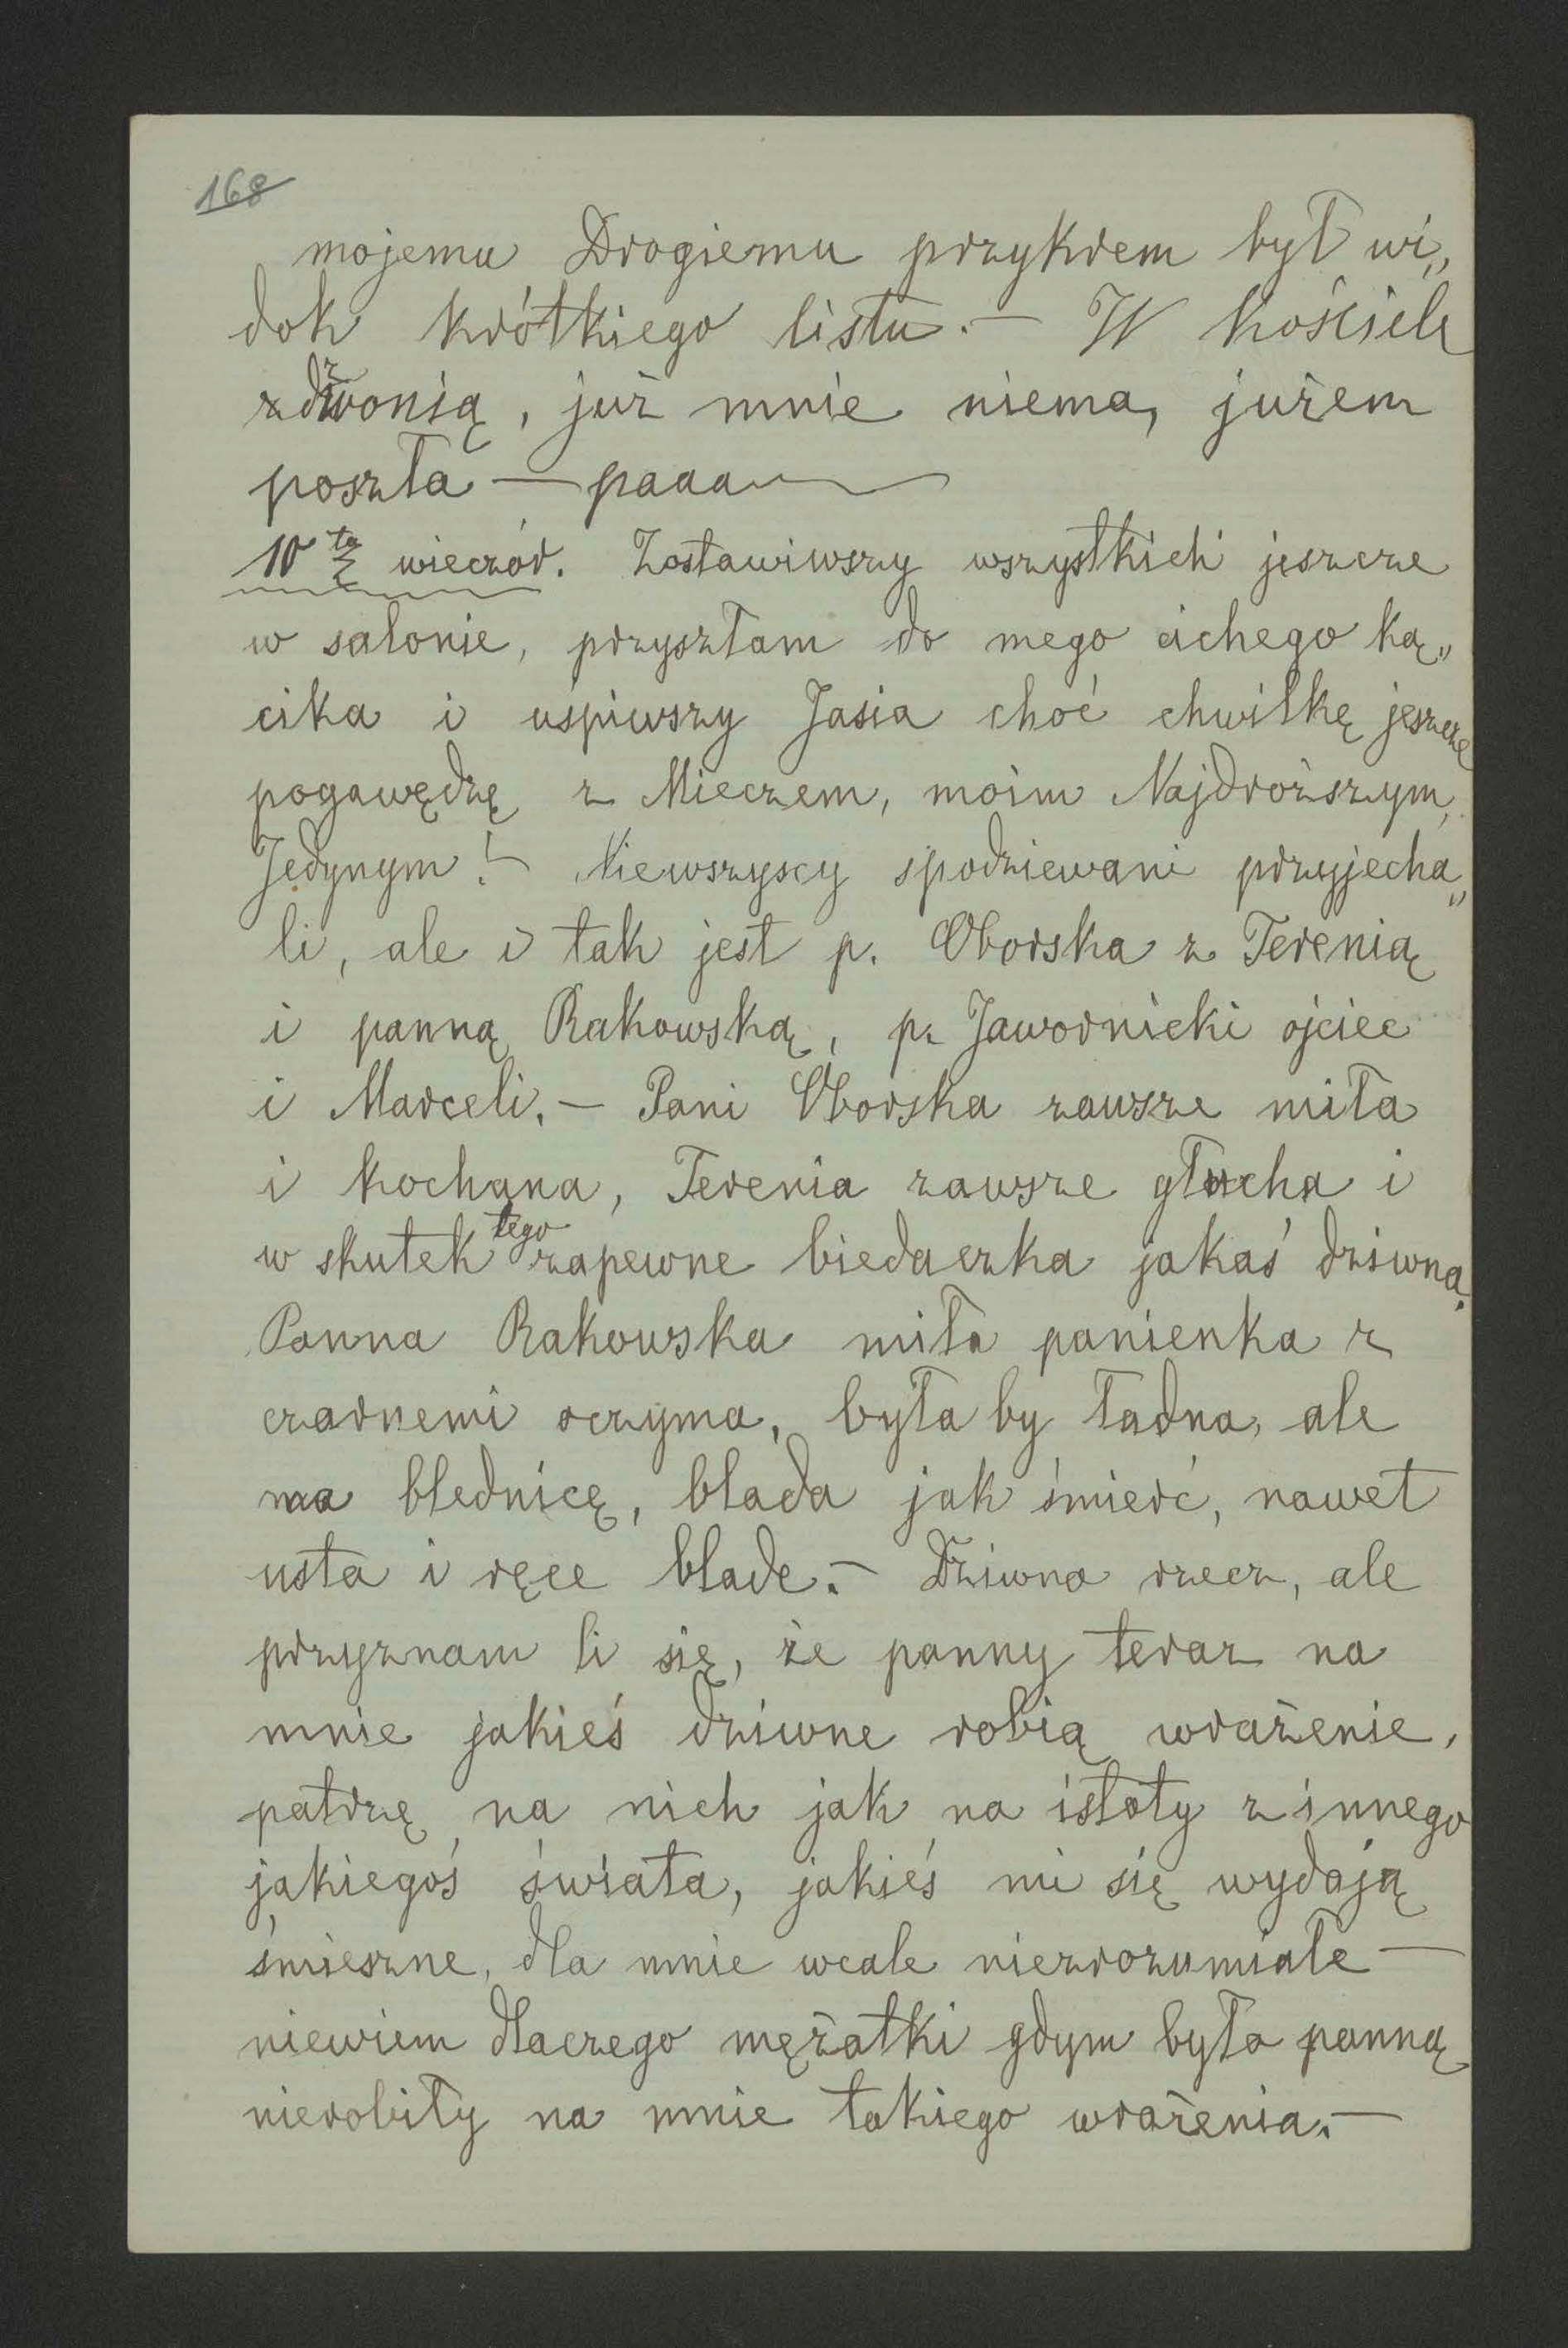 168
mojemu Drogiemu przykrem był wi„
dok krótkiego listu.— W kościele
dzwonią, już mnie niema, jużem
poszła — paaa
10tą wieczór. Zostawiwszy wszystkich jeszcze
w salonie, przyszłam do mego cichego ką„
cika i uśpiwszy Jasia choć chwilkę jeszcze
pogawędzę z Mieczem, moim Najdroższym,
Jedynym!— Niewszyscy spodziewani przyjecha„
li, ale i tak jest p. Oborska z Terenią
i panną Rakowską, p. Jawornicki ojciec
i Marceli.— Pani Oborska zawsze miła
i kochana, Terenia zawsze głucha i
w skutek tego zapewne biedaczka jakaś dziwna.
Panna Rakowska miła panienka z
czarnemi oczyma, była by ładna, ale
ma blednicę, blada jak śmierć, nawet
usta i ręce blade.— Dziwna rzecz, ale
przyznam li się, że panny teraz na
mnie jakieś dziwne robią wrażenie,
patrzę na nich jak na istoty z innego
jakiegoś świata, jakieś mi się wydają
śmieszne, dla mnie wcale niezrozumiałe —
niewiem dlaczego mężatki gdym była panną
nierobiły na mnie takiego wrażenia.—